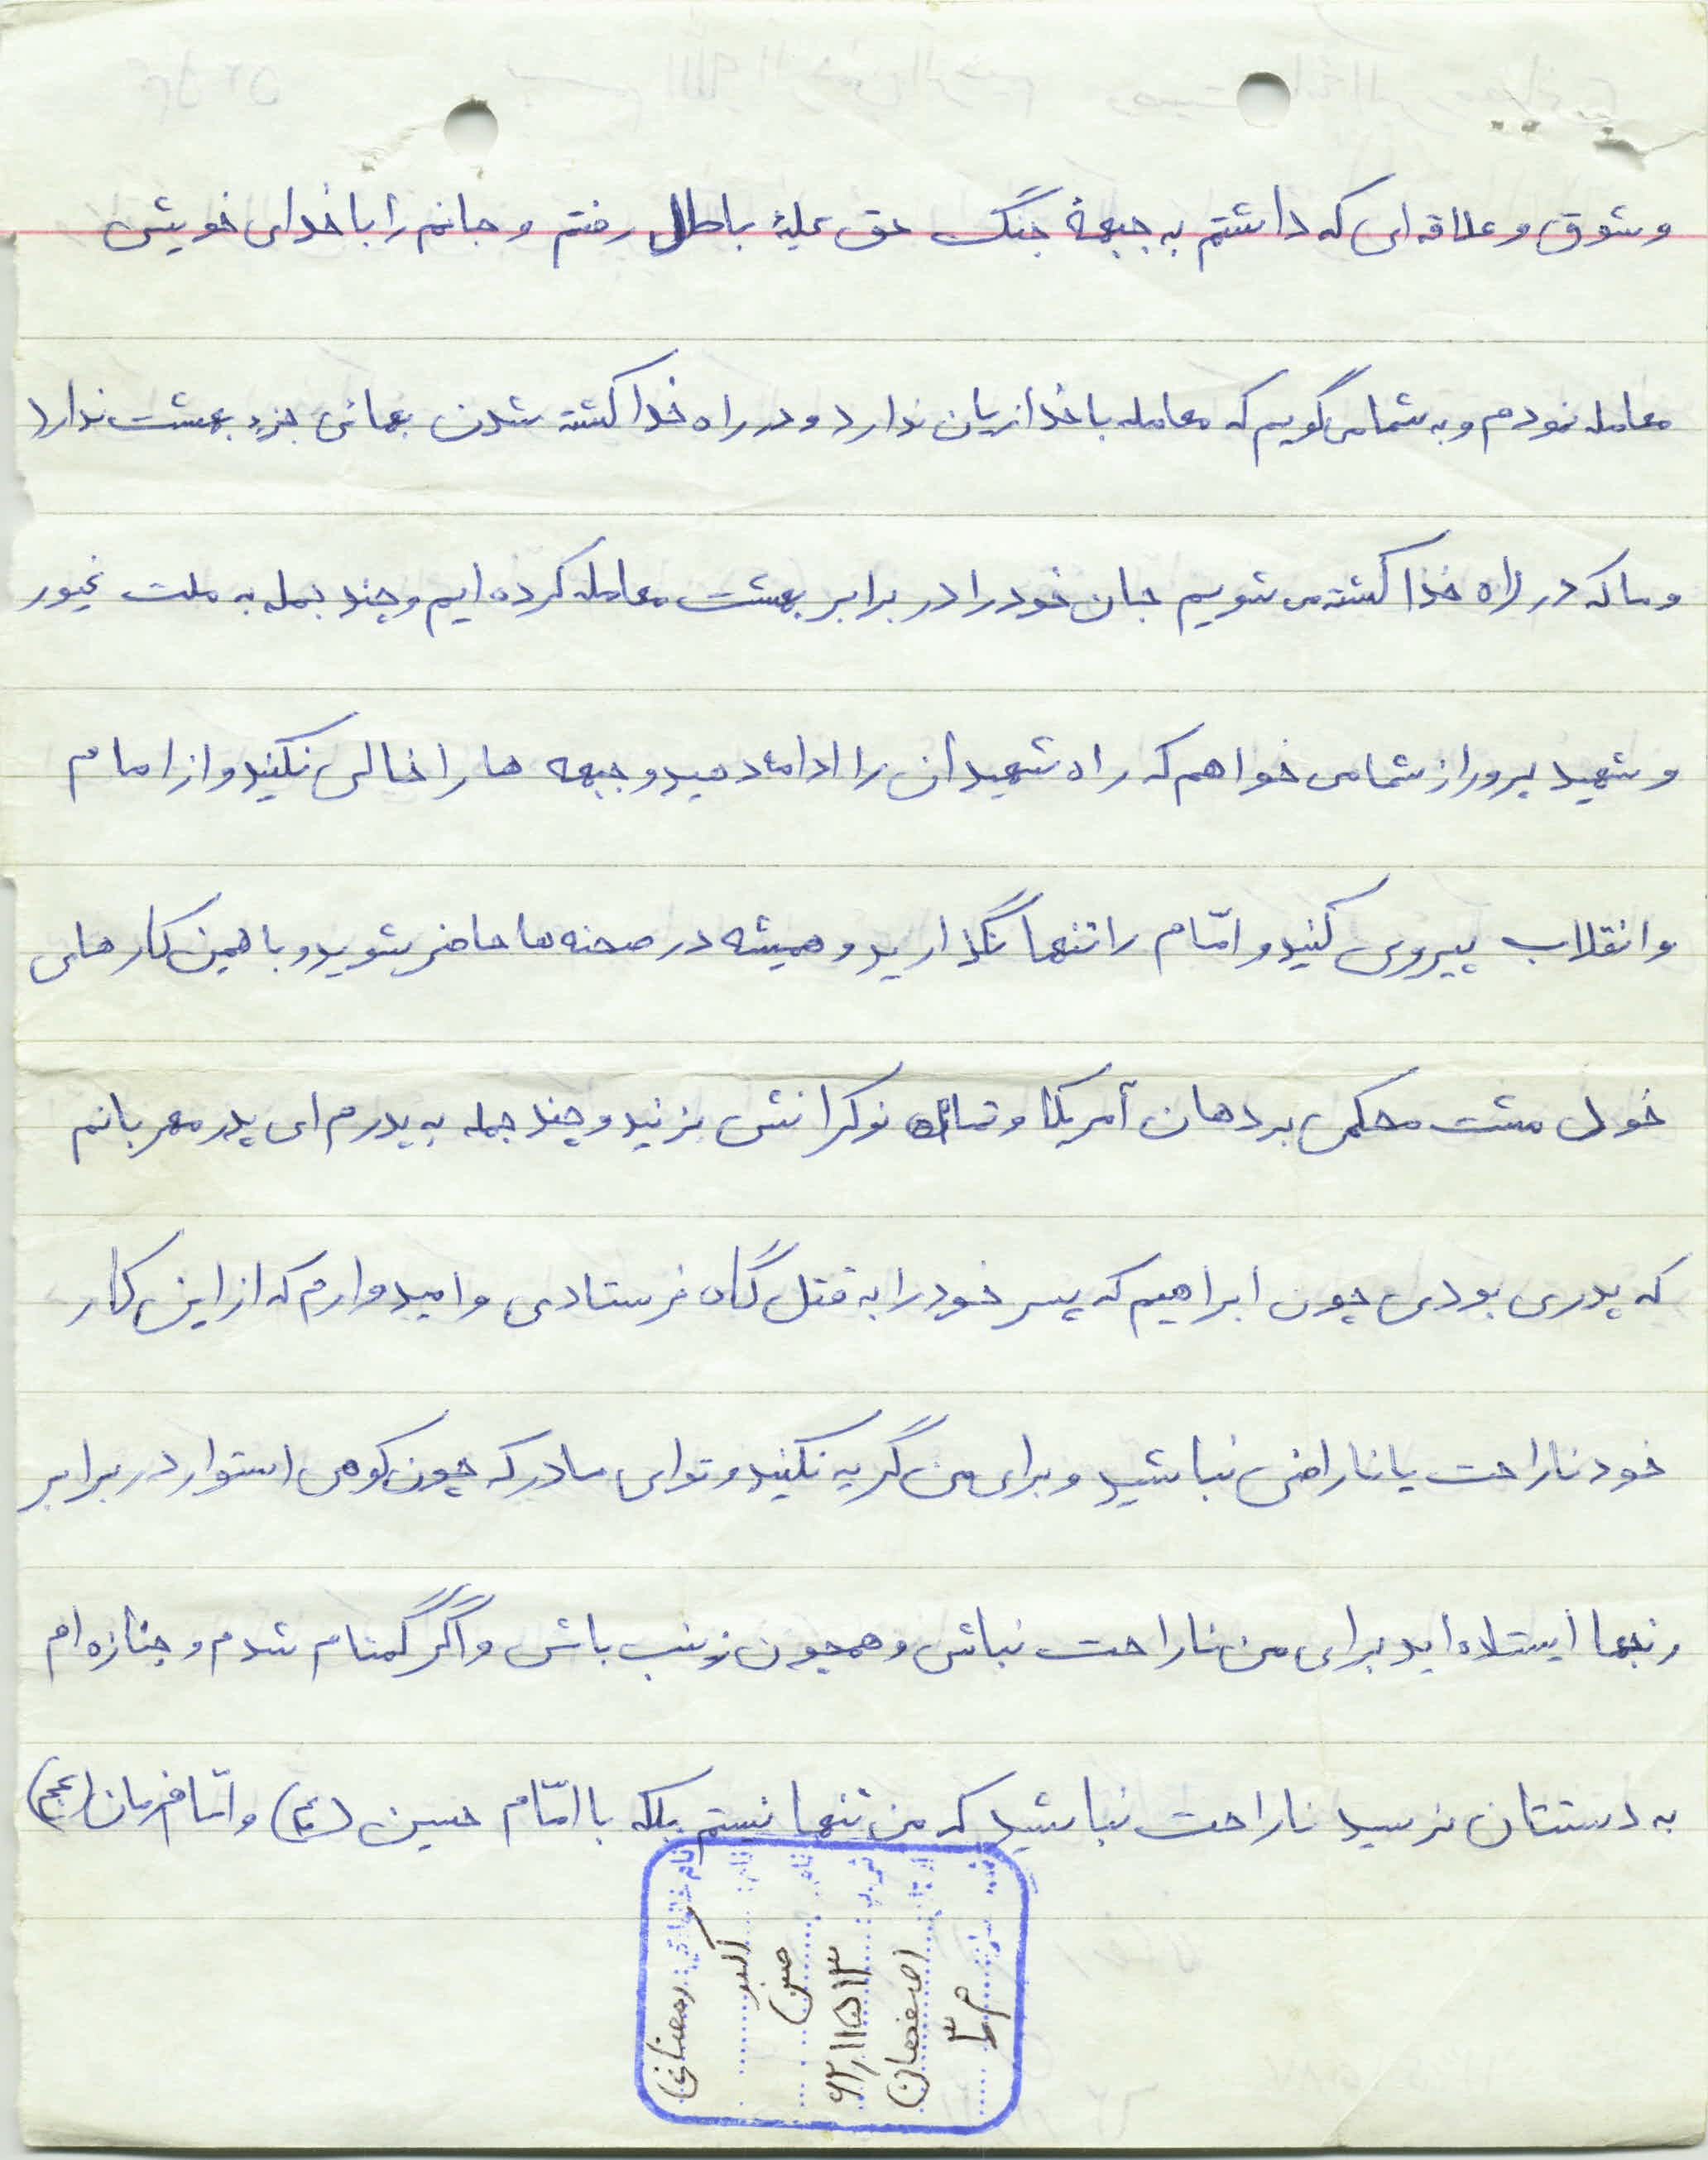 و شوق و علاقه ای که داشتم به جبههٔ جنگ حق علیهٔ باطل رفتم و جانم را با خدای خویش
معامله نمودم و به شما می گویم که معامله با خدا زیان ندارد و در راه خدا کشته شدن بهائی جزء بهشت ندارد
و ما که در راه خدا کشته می شویم جان خود را در برابر بهشت معامله کرده ایم و چند جمله به ملت غیور
و شهید پرور از شما می خواهم که راه شهیدان را ادامه دهید و جبهه ها را خالی نکنید و از امام
و انقلاب پیروی کنید و امّام را تنها نگذارید و همیشه در صحنه ها حاضر شوید و با همین کارهای
خود مشت محکمی بر دهان آمریکا و تمام نوکرانش بزنید و چند جمله به پدرم ای پدر مهربانم
که پدری بودی چون ابراهیم که پسر خود را به قتل گاه فرستادی و امیدوارم که از این کار
خود ناراحت یا ناراضی نباشید و برای من گریه نکنید و تو ای مادر که چون کوهی استوار در برابر
رنجها ایستاده اید برای من ناراحت نباش و همچون زینب باش و اگر گمنام شدم و جنازه ام
به دستتان نرسید ناراحت نباشید که من تنها نیستم بلکه با امّام حسین (ع) و امّام زمان (عج)
نام خانوادگی: رمضانی
نام: اکبر
نام حسن
۶۲٫۱۱۵۱۳
اصفهان